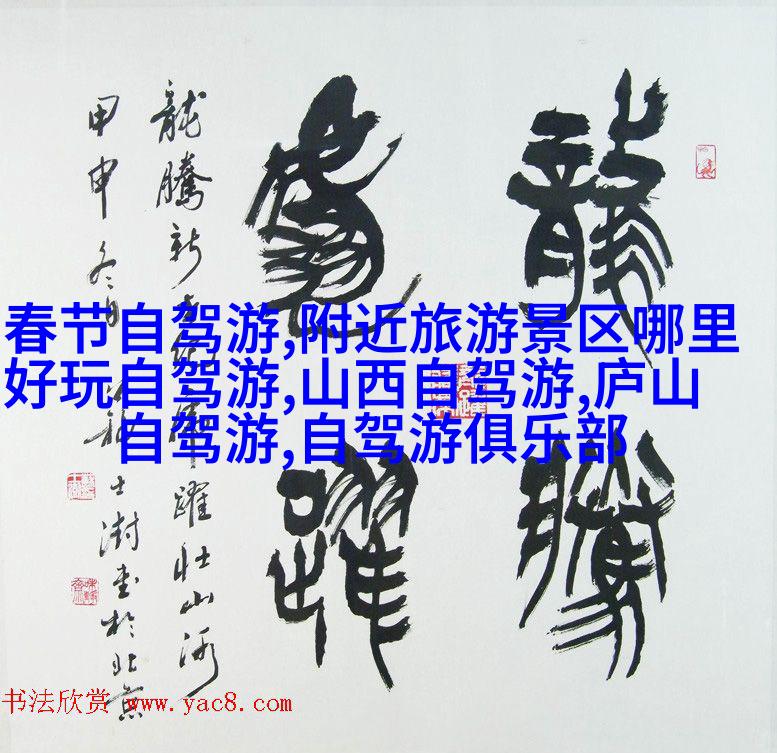 龍騰
虎躍
龍騰新世紀虎躍壯山河
甲申冬日 士澍書於北京
春节自驾游,附近旅游景区哪里
好玩自驾游,山西自驾游,庐山
自驾游,自驾游俱乐部
书法欣赏 www.yac8.com